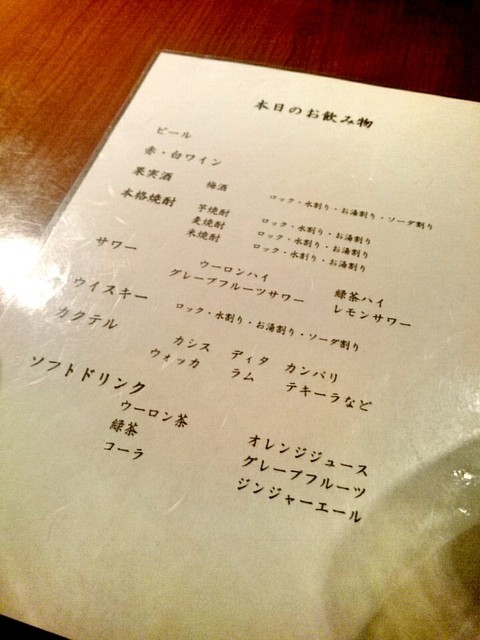 本日のお飲み物
ビール
赤・白ワイン
果実酒 梅酒 ロック・水割り・お湯割り・ソーダ割り
本格焼酎 芋焼酎 ロック・水割り・お湯割り
麦焼酎 ロック・水割り・お湯割り
米焼酎 ロック・水割り・お湯割り
サワー ウーロンハイ 緑茶ハイ
グレープフルーツサワー レモンサワー
ウイスキー ロック・水割り・お湯割り・ソーダ割り
カクテル カシス ディタ カンパリ
ウォッカ ラム テキーラなど
ソフトドリンク
ウーロン茶 オレンジジュース
緑茶 グレープフルーツ
コーラ ジンジャーエール